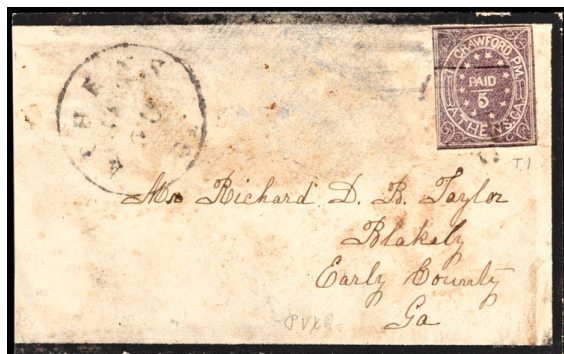 ATHENS
GA
T. CRAWFORD, P.M.
PAID
5
ATHENS, GA.
T.I
Mr Richard D. B. Taylor
Blakely
Early County
Ga